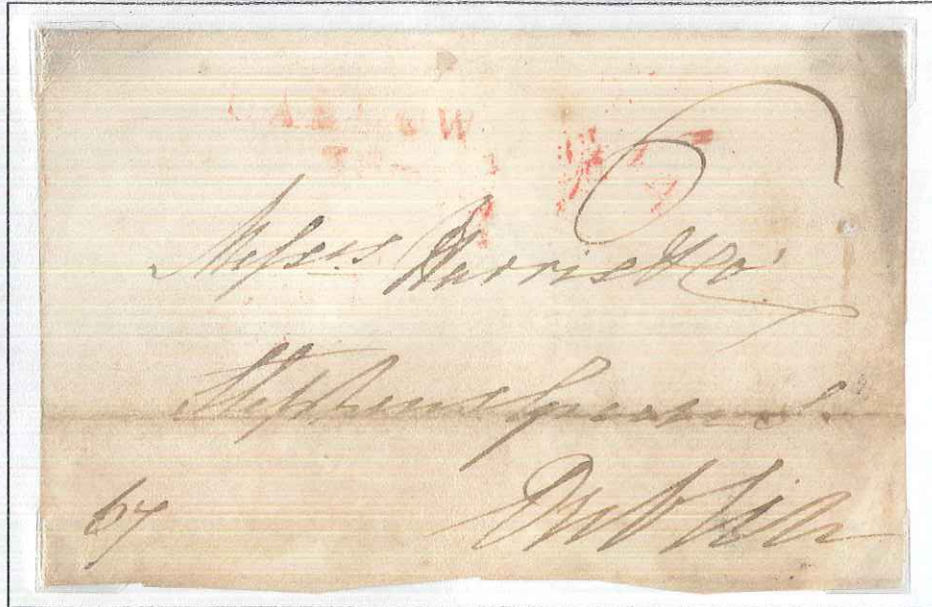 CARLOW
Messrs Harris & Co.
Stephens Green S.
Dublin
67